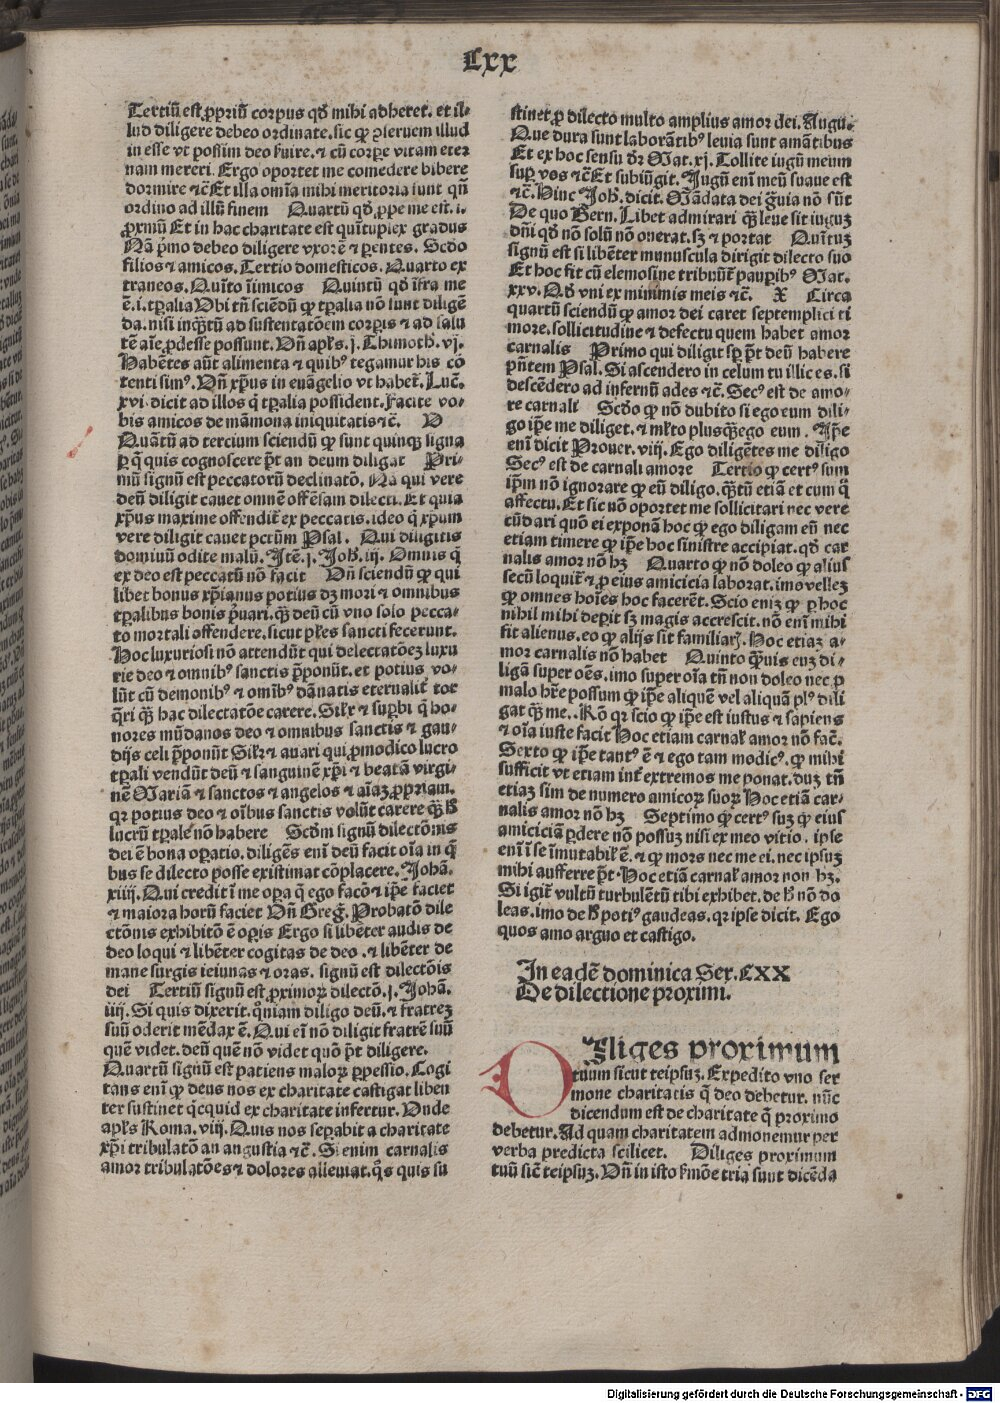 Lxx
Tertiū est ꝓpriū corpus qđ mihi adheret. et il-
lud diligere debeo ordinate. sic ꝙ ꝯseruem illud
in esse vt possim deo ẜuire. ⁊ cū corpe vitam eter
nam mereri. Ergo oportet me comedere bibere
dormire ⁊c̄ Et illa om̄ia mihi meritoria sunt qn̄
ordino ad illū finem Quartū qđ ꝓpe me est. i.
ꝓximū Et in hac charitate est quītuplex gradus
Nā p̄mo debeo diligere vxorē ⁊ ꝑentes. Scđo
filios ⁊ amicos. Tertio domesticos. Quarto ex
traneos. Quīto īimicos Quintū qđ īfra me
ē. i. tꝑalia Vbi tn̄ sciēdū ꝙ tꝑalia nō sunt diligē
da. nisi inqᷓtū ad sustentatōem corpis ⁊ ad salu
tē aīe ꝓdesse possunt. Vn̄ apl̄s. j. Thimoth. vj.
Habētes aūt alimenta ⁊ quibꝰ tegamur his cō
tenti simꝰ. Vn̄ xp̄us in euāgelio vt habet᷑. Luc̄.
xvi. dicit ad illos q̄ tꝑalia possident. Facite vo-
bis amicos de māmona iniquitatis ⁊c̄. V
Quātū ad tercium sciendū ꝙ sunt quinqꝫ signa
ꝑ q̄ quis cognoscere p̄t an deum diligat Pri-
mū signū est peccatorū declinatō. Nā qui vere
deū diligit cauet omnē offēsam dilecti. Et quia
xp̄us maxime offendit᷑ ex peccatis. ideo q̇ xp̄um
vere diligit cauet pctūm Psal. Qui diligitis
dominū odite malū. Itē. j. Joh̄. iij. Omnis q̇
ex deo est peccatū nō facit Vn̄ sciendū ꝙ qui
libet bonus xp̄ianus potius dꝫ mori ⁊ omnibus
tꝑalibus bonis p̄uari. qᷓꝫ deū cū vno solo pecca-
to mortali offendere. sicut pl̄es sancti fecerunt.
Hoc luxuriosi nō attendūt qui delectatōeꝫ luxu
rie deo ⁊ omnibꝰ sanctis p̄ponūt. et potius vo-
lūt cū demonibꝰ ⁊ om̄ibꝰ dānatis eternalit᷑ tor
q̄ri qᷓꝫ hac dilectatōe carere. Sil̄r ⁊ suꝑbi q̇ ho-
nores mūdanos deo ⁊ omnibus sanctis ⁊ gau-
dijs celi p̄ponūt Sil̄r ⁊ auari qui ꝓ modico lucro
tꝑali vendūt deū ⁊ sanguinē xp̄i ⁊ beatā virgi-
nē Mariā ⁊ sanctos ⁊ angelos ⁊ aīaꝫ ꝓpriam.
qꝛ potius deo ⁊ oībus sanctis volūt carere qᷓꝫ ħ
lucrū tꝑale nō habere Scđm signū dilectōnis
dei ē bona oꝑatio. diligēs enī deū facit oīa in q̇
bus se dilecto posse existimat cōplacere. Johā.
xiiij. Qui credit ī me oꝑa q̄ ego facō ⁊ ip̄e faciet
⁊ maiora horū faciet Vn̄ Greḡ. Probatō dile
ctōnis exhibitō ē oꝑis Ergo si libēter audis de
deo loqui ⁊ libēter cogitas de deo. ⁊ libēter de
mane surgis ieiunas ⁊ oras. signū est dilectōis
dei Tertiū signū est ꝓximoꝝ dilectō. j. Johā.
iiij. Si quis dixerit. qm̄iam diligo deū. ⁊ fratreꝫ
suū oderit mēdax ē. Qui eī nō diligit fratrē suū
quē videt. deū quē nō videt quō p̄t diligere.
Quartū signū est patiens maloꝝ ꝑpessio. Cogi
tans enī ꝙ deus nos ex charitate castigat liben
ter sustinet q̇cquid ex charitate infertur. Vnde
apl̄s Roma. viij. Quis nos seꝑabit a charitate
xp̄i tribulatō an angustia ⁊c̄. Si enim carnalis
amor tribulatōes ⁊ dolores alleuiat. q̄s quis su
stinet ꝓ dilecto multo amplius amor dei. Augu.
Que dura sunt laborātibꝰ leuia sunt amātibus
Et ex hoc sensu dr̄ Mat. xj. Tollite iugū meum
suꝑ vos ⁊c̄ Et subiūgit. Jugū enī meū suaue est
⁊c̄. Hinc Joh̄. dicit. Mādata dei gᷓuia nō sūt
De quo Bern. Libet admirari qᷓꝫ leue sit iuguꝫ
dn̄i qđ nō solū nō onerat. sꝫ ⁊ portat Quītuꝫ
signū est si libēter munuscula dirigit dilecto suo
Et hoc fit cū elemosine tribuūt᷑ pauꝑibꝰ Mat.
xxv. Qđ vni ex minimis meis ⁊c̄. X Circa
quartū sciendū ꝙ amor dei caret septemplici ti
more. sollicitudine ⁊ defectu quem habet amor
carnalis Primo qui diligit sꝑ p̄t deū habere
pn̄tem Psal. Si ascendero in celum tu illic es. si
descēdero ad infernū ades ⁊c̄. Secꝰ est de amo-
re carnali Scđo ꝙ nō dubito si ego eum dili-
go ip̄e me diliget. ⁊ ml̄to plusqᷓꝫ ego eum. Ip̄e
enī dicit Prouer. viij. Ego diligētes me diligo
Secꝰ est de carnali amore Tertio ꝙ certꝰ sum
ip̄m nō ignorare ꝙ eū diligo. qᷓtū etiā et cum q̇
affectu. Et sic nō oportet me sollicitari nec vere
cūdari quō ei exponā hoc ꝙ ego diligam eū nec
etiam timere ꝙ ip̄e hoc sinistre accipiat. qđ car
nalis amor nō hꝫ Quarto ꝙ nō doleo ꝙ alius
secū loquit᷑ ⁊ ꝓ eius amicicia laborat. imo velleꝫ
ꝙ omnes hoīes hoc facerēt. Scio eniꝫ ꝙ ꝑ hoc
nihil mihi deꝑit sꝫ magis accrescit. nō enī mihi
fit alienus. eo ꝙ alijs sit familiarꝭ. Hoc etiaꝫ a-
mor carnalis nō habet Quinto qᷓuis euꝫ di-
ligā super oēs. imo super oīa tn̄ non doleo nec ꝓ
malo hr̄e possum ꝙ ip̄e aliquē vel aliquā plꝰ dili
gat qᷓꝫ me. Rō qꝛ scio ꝙ ip̄e est iustus ⁊ sapiens
⁊ oīa iuste facit Hoc etiam carnal̄ amor nō fac̄.
Sexto ꝙ ip̄e tantꝰ ē ⁊ ego tam modicꝰ. ꝙ mihi
sufficit vt etiam int᷑ extremos me ponat. duꝫ tn̄
etiaꝫ sim de numero amicoꝝ suoꝝ Hoc etiā car-
nalis amor nō hꝫ Septimo ꝙ certꝰ suꝫ ꝙ eius
amiciciā ꝑdere nō possuꝫ nisi ex meo vitio. ipse
enī ī se īmutabil̄ ē. ⁊ ꝙ mors nec me ei. nec ipsuꝫ
mihi aufferre p̄t. Hoc etiā carnal̄ amor non hꝫ.
Si igit᷑ vultū turbulētū tibi exhibet. de ħ nō do
leas. imo de ħ potiꝰ gaudeas. qꝛ ipse dicit. Ego
quos amo arguo et castigo.
In eadē dominica Ser. LXX
De dilectione proximi.
DIliges proximum
tuum sicut teipsuꝫ. Expedito vno ser
mone charitatis q̄ deo debetur. nūc
dicendum est de charitate q̄ proximo
debetur. Ad quam charitatem admonemur per
verba predicta scilicet. Diliges proximum
tuū sic̄ teipsuꝫ. Vn̄ in isto ẜmōe tria sunt dicēda
Digitalisierung gefördert durch die Deutsche Forschungsgemeinschaft - DFG